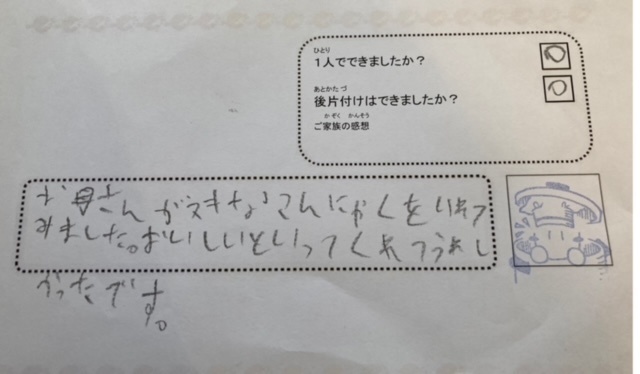 ひとり
1人でできましたか？
あとかたづ
後片付けはできましたか？
かぞく かんそう
ご家族の感想
お母さんがスキなこんにゃくをいれて
みました。おいしいといってくれてうれし
かったです。